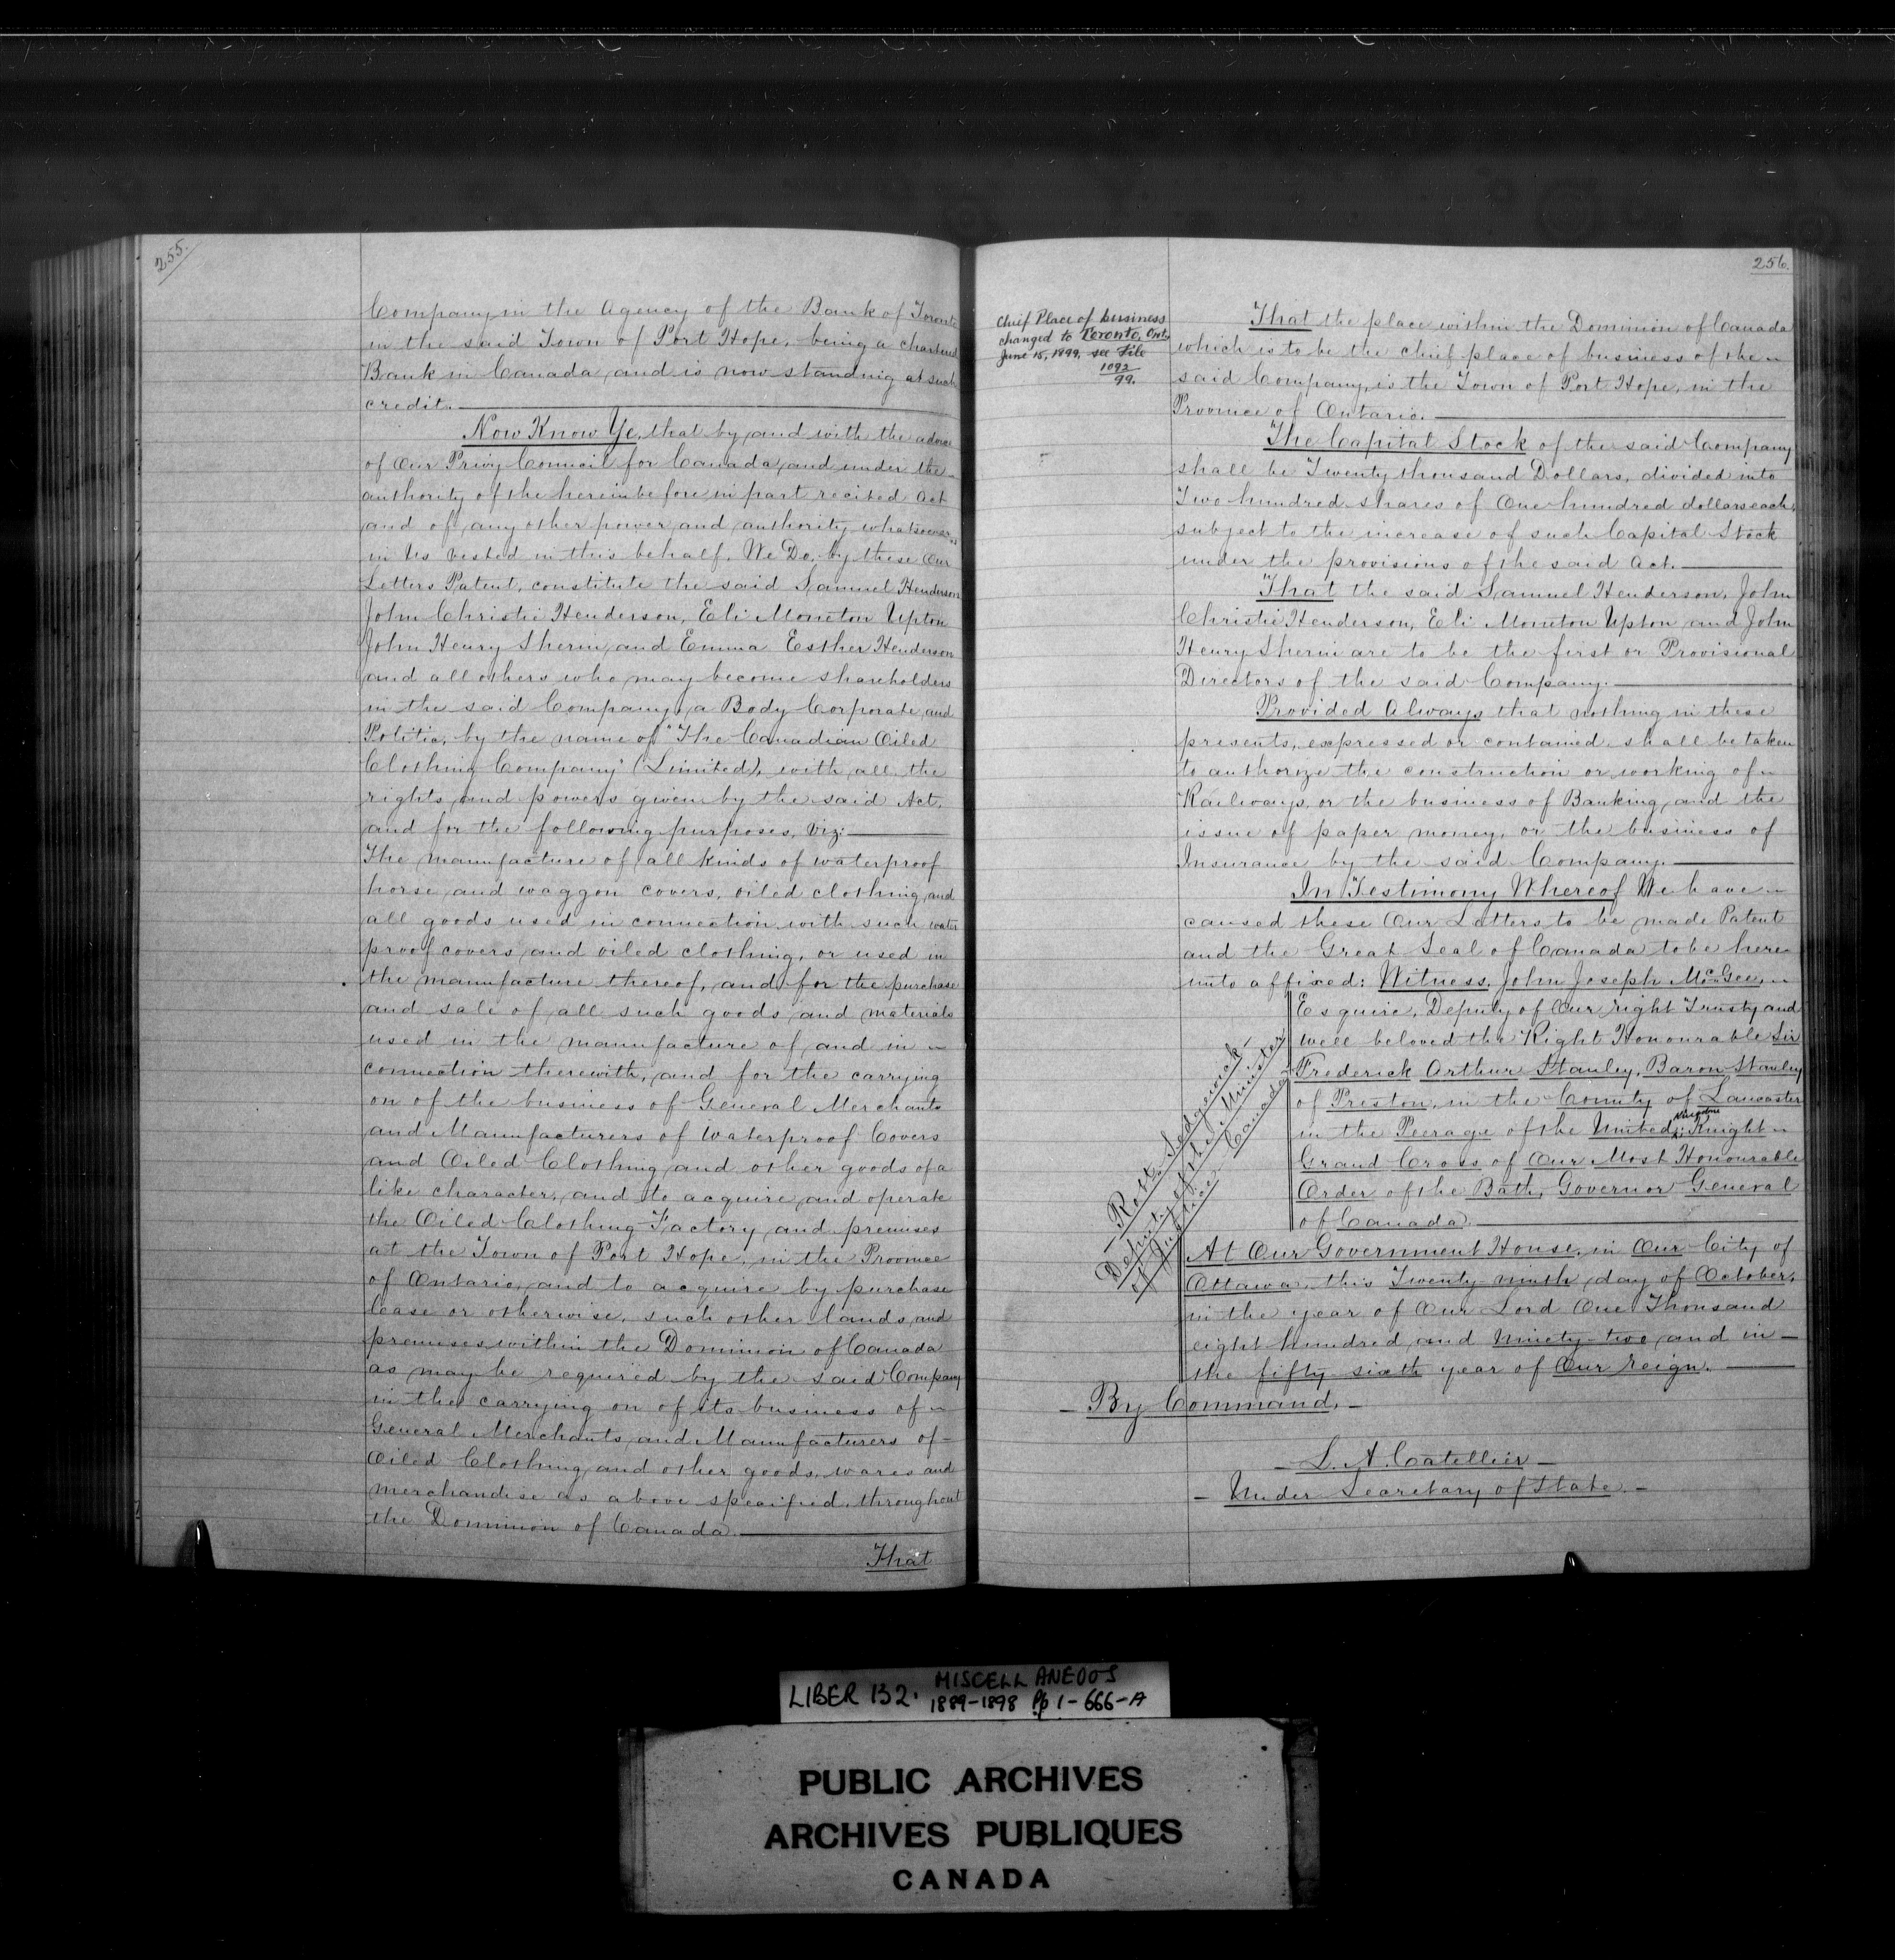 255.
Company in the Agency of the Bank of Toronto
in the said Town of Port Hope, being a chartered
Bank in Canada and is now standing at such
credit.
Now Know Ye, that by and with the advice
of Our Privy Council for Canada, and under the
authority of the hereinbefore in part recited Act
and of any other power and authority whatsoever
in Us vested in this behalf, We Do, by these Our
Letters Patent, constitute the said Samuel Henderson
John Christie Henderson, Eli Moncton Upton
John Henry Sherin, and Emma Esther Henderson
and all others who may become shareholders
in the said Company, a Body Corporate and
Politic, by the name of "The Canadian Oiled
Clothing Company" (Limited), with all the
rights and powers given by the said Act,
and for the following purposes, viz:
The manufacture of all kinds of waterproof
horse and waggon covers, oiled clothing and
all goods used in connection with such water
proof covers and oiled clothing, or used in
the manufacture thereof, and for the purchase
and sale of all such goods and materials
used in the manufacture of and in
connection therewith, and for the carrying
on of the business of General Merchants
and Manufacturers of Waterproof Covers
and Oiled Clothing and other goods of a
like character, and to acquire and operate
the Oiled Clothing Factory and premises
at the Town of Port Hope, in the Province
of Ontario, and to acquire by purchase
lease or otherwise, such other lands and
premises within the Dominion of Canada
as may be required by the said Company
in the carrying on of its business of
General Merchants and Manufacturers of
Oiled Clothing and other goods, wares and
merchandise as above specified, throughout
the Dominion of Canada.
That
256.
Chief Place of business
changed to Toronto, Ont,
June 15, 1899, see File
1092
99.
That the place within the Dominion of Canada
which is to be the chief place of business of the
said Company, is the Town of Port Hope, in the
Province of Ontario.
The Capital Stock of the said Company
shall be Twenty thousand Dollars, divided into
Two hundred shares of One hundred dollars each,
subject to the increase of such Capital Stock
under the provisions of the said Act.
That the said Samuel Henderson, John
Christie Henderson, Eli Moncton Upton and John
Henry Sherin are to be the first or Provisional
Directors of the said Company.
Provided Always that nothing in these
presents, expressed or contained shall be taken
to authorize the construction or working of
Railways, or the business of Banking, and the
issue of paper money, or the business of
Insurance by the said Company.
In Testimony Whereof We have
caused these Our Letters to be made Patent
and the Great Seal of Canada to be here
unto affixed: Witness, John Joseph McGee,
Esquire, Deputy of Our right Trusty and
well beloved the Right Honourable Sir
Frederick Arthur Stanley, Baron Stanley
of Preston, in the County of Lancaster
in the Peerage of the United Kingdom; Knight
Grand Cross of Our Most Honourable
Order of the Bath, Governor General
of Canada.
- Robt. Sedgewick -
Deputy of the Minister
of Justice Canada
At Our Government House, in Our City of
Ottawa, this Twenty ninth day of October,
in the year of Our Lord One Thousand
eight hundred and Ninety-two and in -
the fifty sixth year of Our reign.
- By Command, -
- L. A. Catellier -
- Under Secretary of State. -
LIBER 132. MISCELLANEOUS
1889-1898 Pp 1-666-A
PUBLIC ARCHIVES
ARCHIVES PUBLIQUES
CANADA